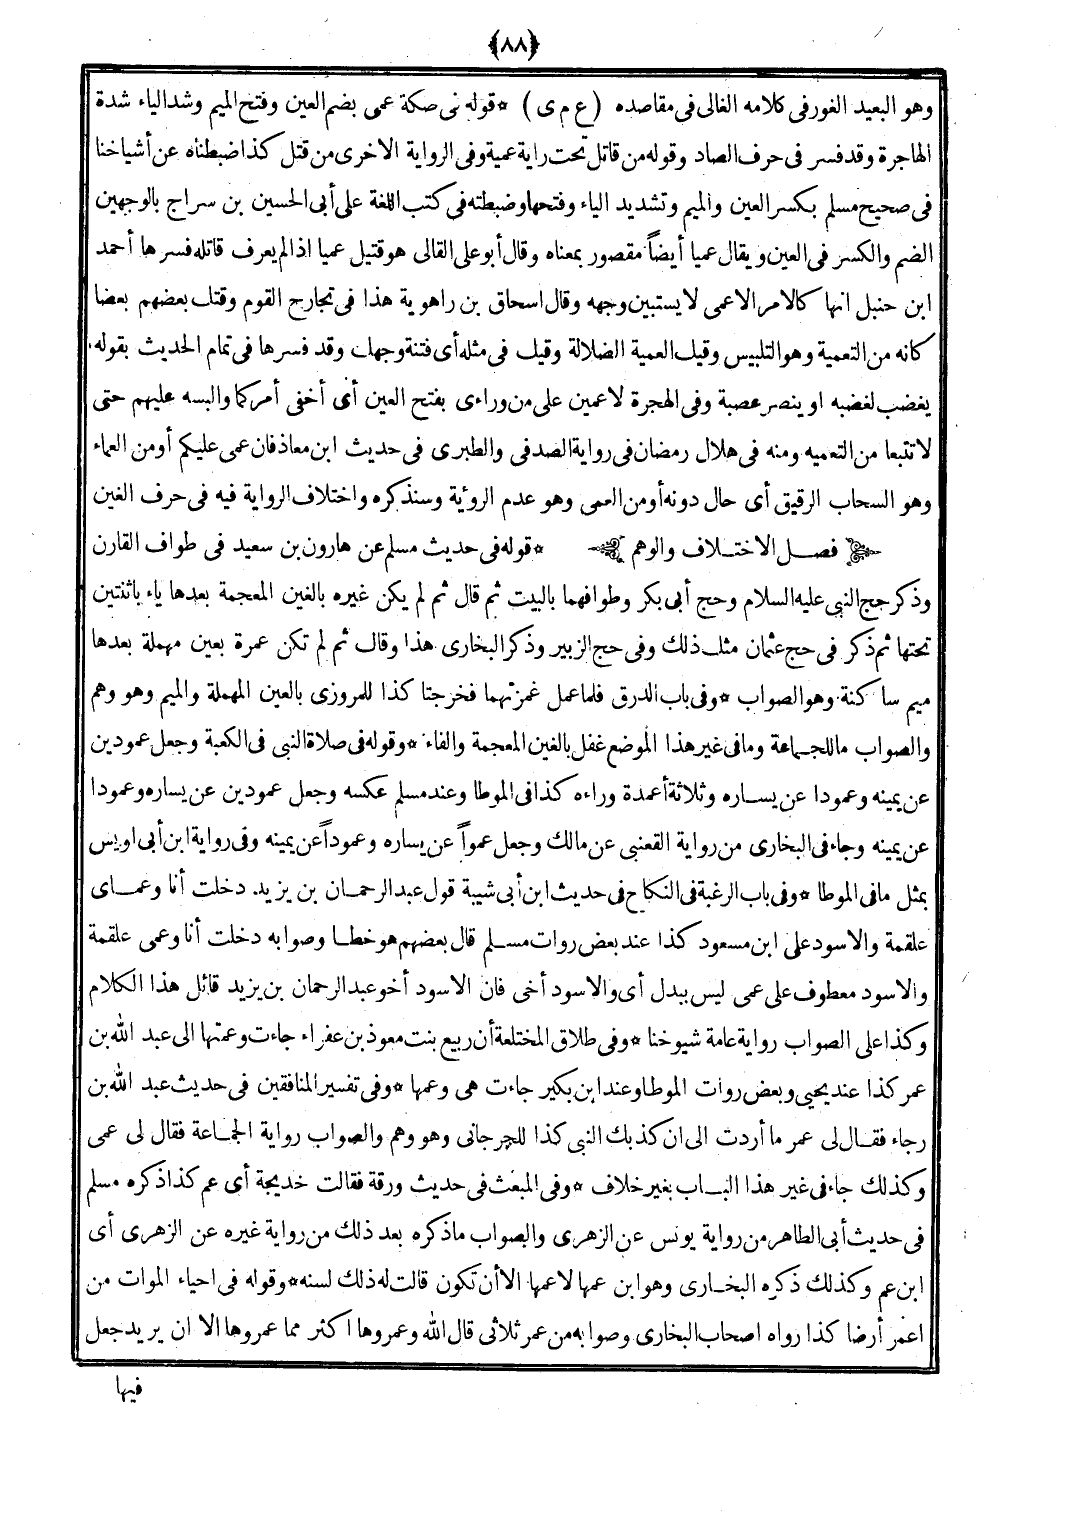 ﴿٨٨﴾
وهو البعيد الغور فى كلامه الغالى فى مقاصده (ع م ى) * قوله فى صكة عمى بضم العين وفتح الميم وشد الياء شدة
الهاجرة وقد فسر فى حرف الصاد وقوله من قاتل تحت راية عمية وفى الرواية الاخرى من قتل كذا ضبطناه عن أشياخنا
فى صحيح مسلم بكسر العين والميم وتشديد الياء وفتحها وضبطته فى كتب اللغة على أبى الحسين بن سراج بالوجهين
الضم والكسر فى العين ويقال عميا أيضاً مقصور بمعناه وقال أبو على القالى هو قتيل عميا اذالم يعرف قاتله فسرها أحمد
ابن حنبل انها كالامر الاعمى لا يستبين وجهه وقال اسحاق بن راهوية هذا فى تجارح القوم وقتل بعضهم بعضا
كانه من التعمية وهو التلبيس وقيل العمية الضلالة وقيل فى مثله أى فتنة وجهل وقد فسرها فى تمام الحديث بقوله
يغضب لغضبه او ينصر عصبة وفى الهجرة لاعمين على من وراءى بفتح العين أى أخفى أمركما والبسه عليهم حتى
لا تتبعا من التعميه ومنه فى هلال رمضان فى رواية الصدفى والطبرى فى حديث ابن معاذ فان عمى عليكم أو من العماء
وهو السحاب الرقيق أى حال دونه أو من العمى وهو عدم الرؤية وسنذكره واختلاف الرواية فيه فى حرف الغين
فصل الاختلاف والوهم * قوله فى حديث مسلم عن هارون بن سعيد فى طواف القارن
وذكر حج النبي عليه السلام وحج أبى بكر وطوافهما بالبيت ثم قال ثم لم يكن غيره بالغين المعجمة بعدها ياء باثنتين
تحتها ثم ذكر فى حج عثمان مثل ذلك وفى حج الزبير وذكر البخارى هذا وقال ثم لم تكن عمرة بعين مهملة بعدها
ميم ساكنة وهو الصواب * وفى باب الدرق فلما عمل غمزتهما فخرجتا كذا للمروزى بالعين المهملة والميم وهو وهم
والصواب ما للجماعة وما فى غير هذا الموضع غفل بالغين المعجمة والفاء * وقوله فى صلاة النبى فى الكعبة وجعل عمودين
عن يمينه وعمودا عن يساره وثلاثة أعمدة وراءه كذا فى الموطا وعند مسلم عكسه وجعل عمودين عن يساره وعمودا
عن يمينه وجاء فى البخارى من رواية القعنبى عن مالك وجعل عمواً عن يساره وعموداً عن يمينه وفى رواية ابن أبى اويس
بمثل ما فى الموطا * وفى باب الرغبة فى النكاح فى حديث ابن أبى شيبة قول عبد الرحمان بن يزيد دخلت أنا وعماى
علقمة والاسود على ابن مسعود كذا عند بعض روات مسلم قال بعضهم هو خطا وصوابه دخلت أنا وعمى علقمة
والاسود معطوف على عمى ليس ببدل أى والاسود أخى فان الاسود أخو عبد الرحمان بن يزيد قائل هذا الكلام
وكذا على الصواب رواية عامة شيوخنا * وفى طلاق المختلعة أن ربيع بنت معوذ بن عفراء جاءت وعمتها الى عبد الله بن
عمر كذا عند يحيى وبعض روات الموطا وعند ابن بكير جاءت هى وعمها * وفى تفسير المنافقين فى حديث عبد الله بن
رجاء فقال لى عمر ما أردت الى ان كذبك النبى كذا للجرجانى وهو وهم والصواب رواية الجماعة فقال لى عمى
وكذلك جاء فى غير هذا الباب بغير خلاف * وفى المبعث فى حديث ورقة فقالت خديجة أى عم كذا ذكره مسلم
فى حديث أبى الطاهر من رواية يونس عن الزهرى والصواب ما ذكره بعد ذلك من رواية غيره عن الزهرى أى
ابن عم وكذلك ذكره البخارى وهو ابن عمها لا عمها الا أن تكون قالت له ذلك لسنه * وقوله فى احياء الموات من
اعمر أرضا كذا رواه اصحاب البخارى وصوابه من عمر ثلاثى قال الله وعمروها اكثر مما عمروها الا ان يريد جعل
فيها